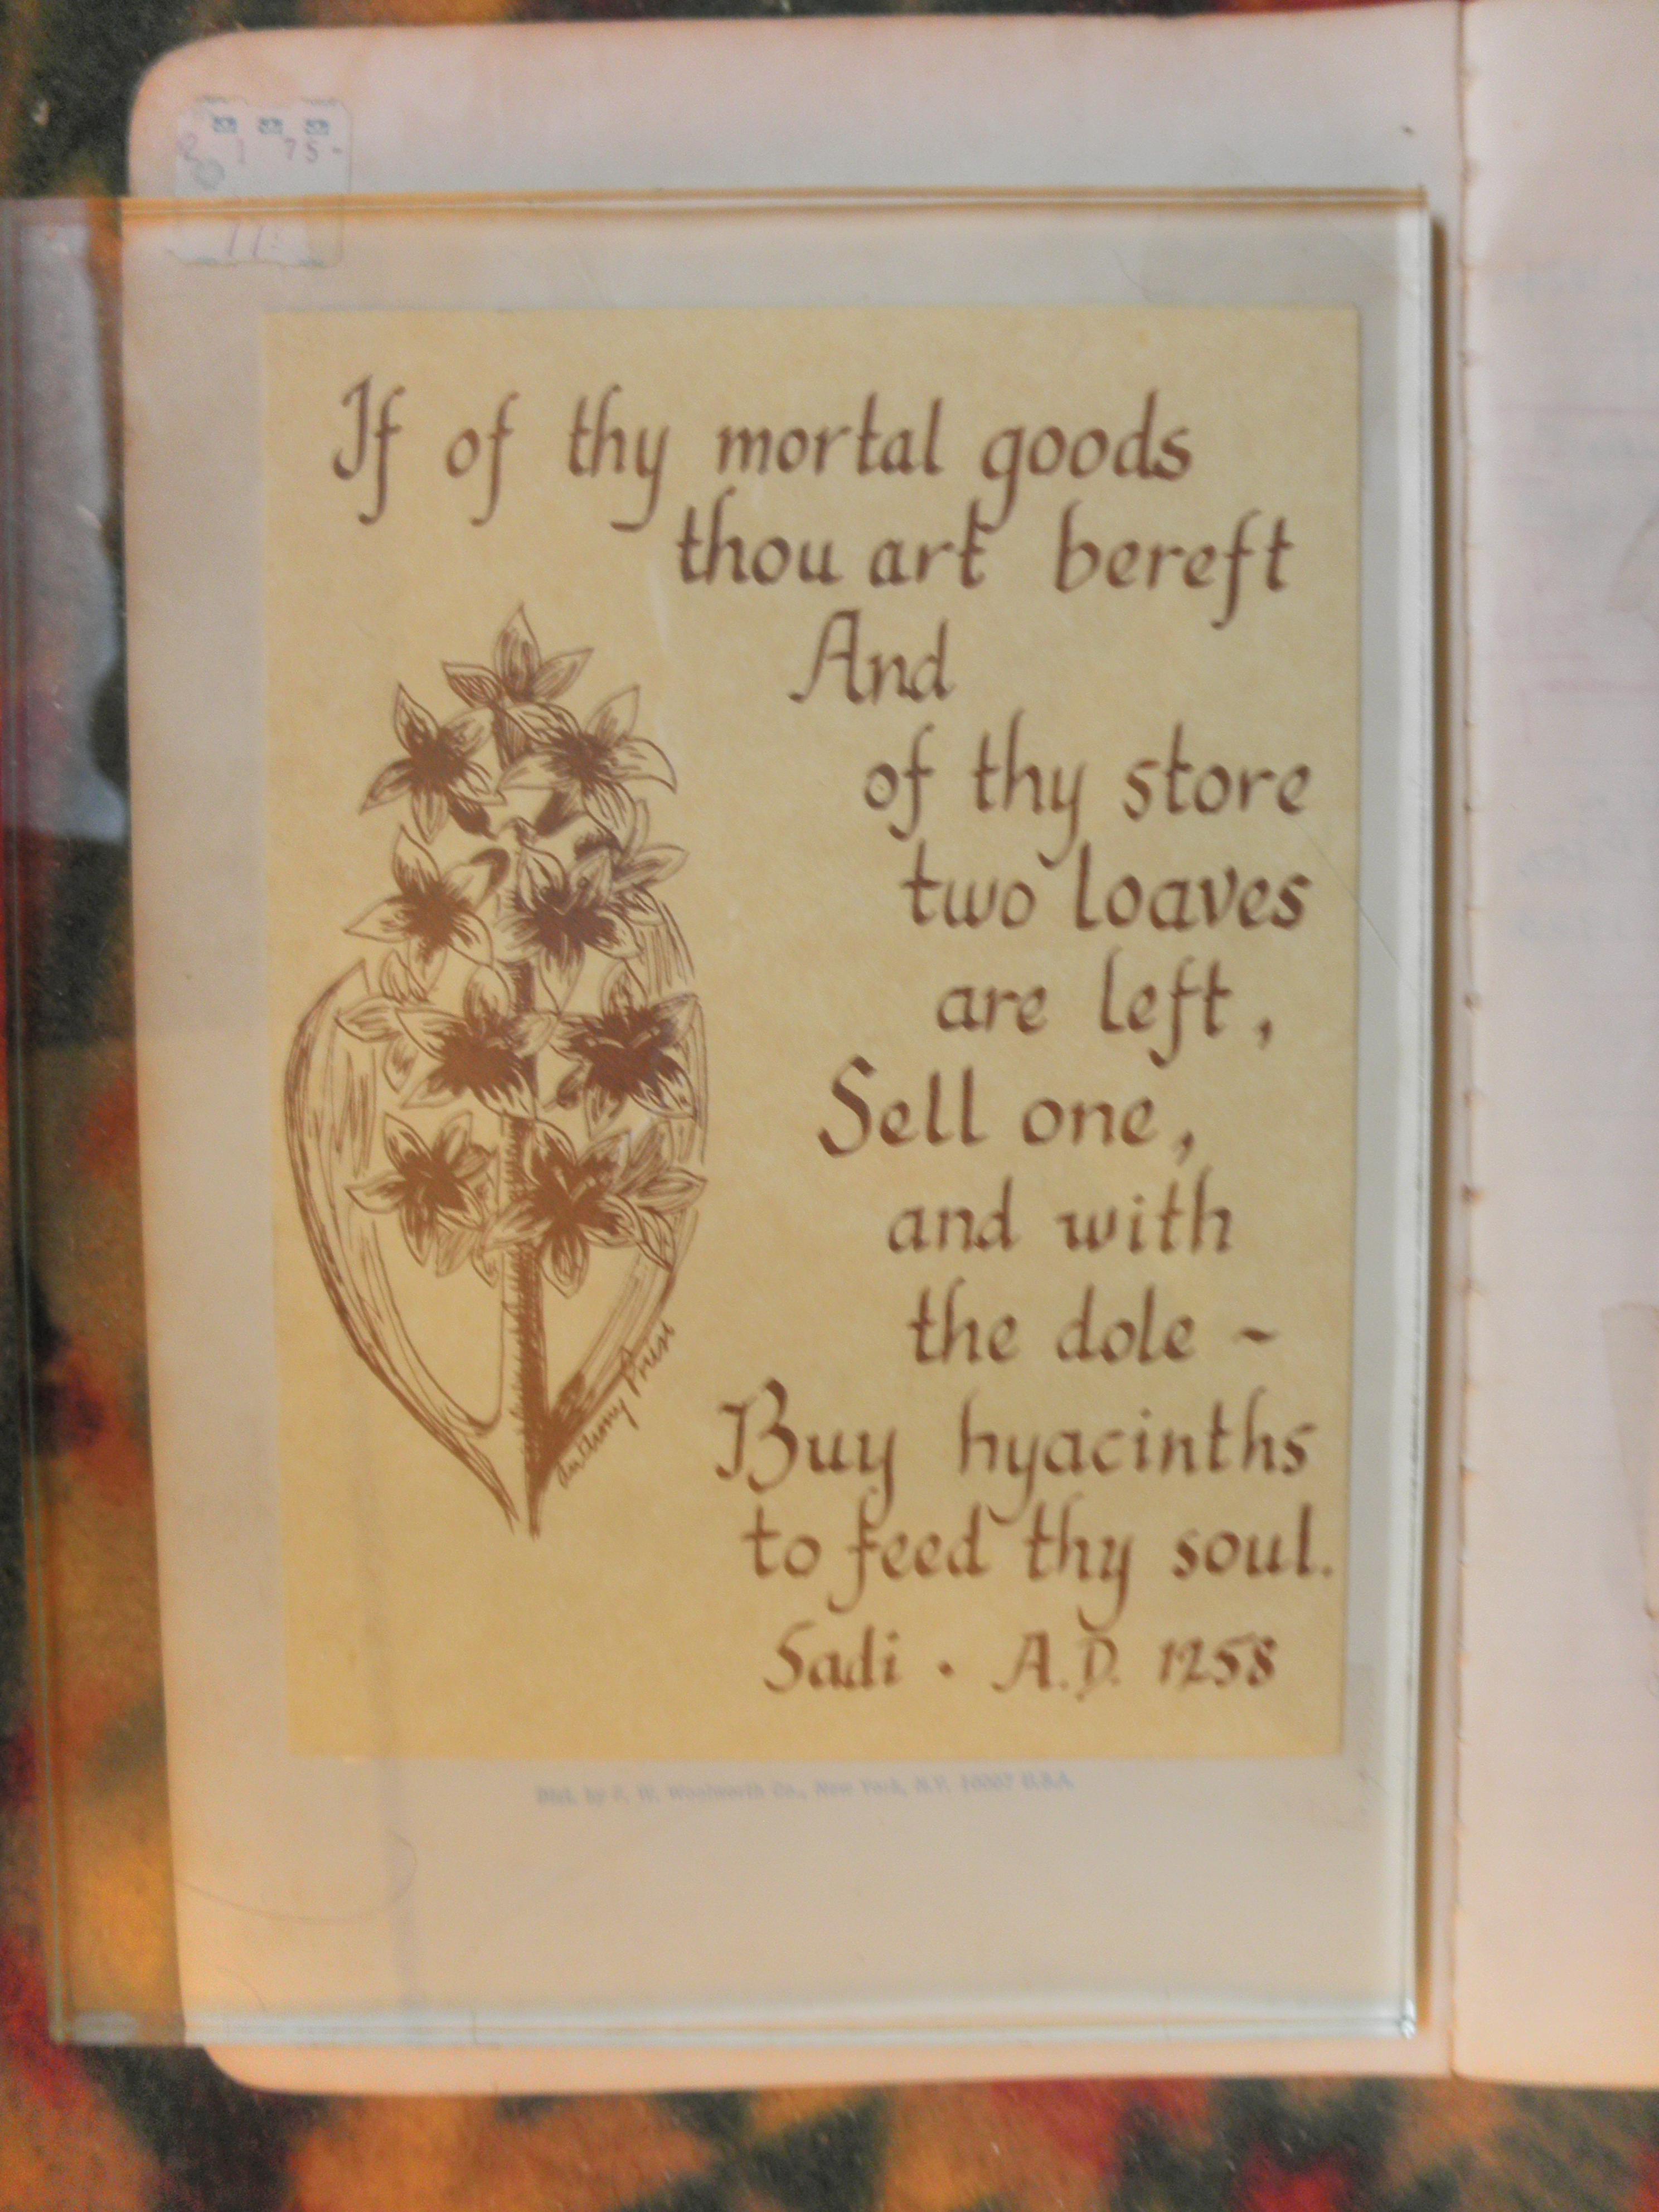 75-
11
If of thy mortal goods
thou art bereft
And
of thy store
two loaves
are left,
Sell one,
and with
the dole ~
Buy hyacinths
to feed thy soul.
Sadi . A.D. 1258
Anthony
Dist. by F. W. Woolworth Co., New York, N.Y. U.S.A.